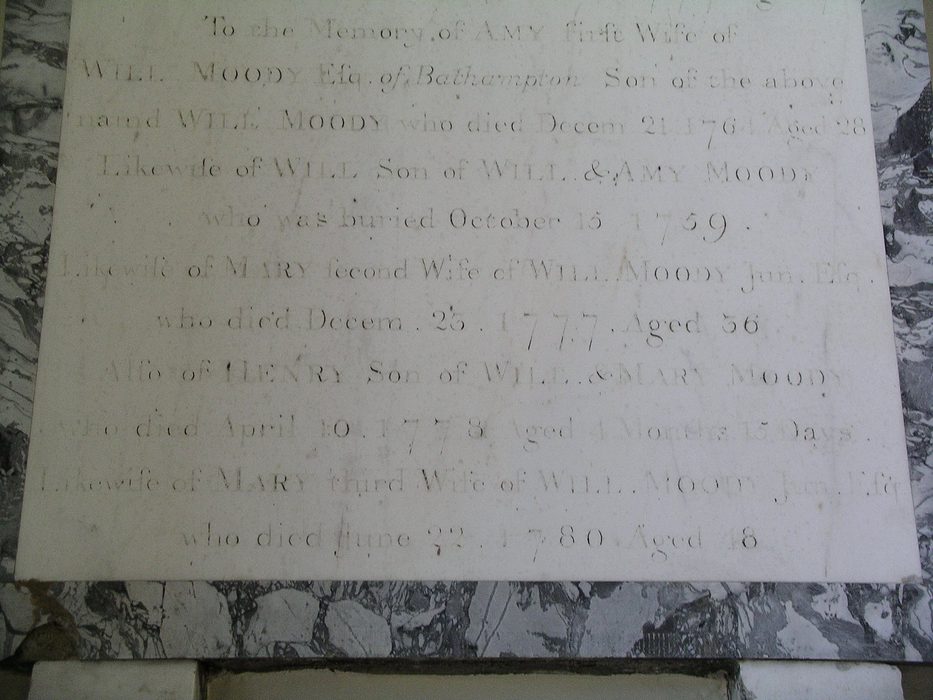 To the Memory of AMY firſt Wife of
WILL MOODY Eſq. of Bathampton Son of the above
namd WILL MOODY who died Decem 21 176 Aged 28
Likewiſe of WILL Son of WILL. & AMY MOODY
who was buried October 15 1759.
Likewiſe of MARY ſecond Wife of WILL. MOODY Jun. Eſq.
who died Decem. 25. 1777. Aged 36
Alſo of HENRY Son of WILL. & MARY MOODY
who died April 10. 1778 Aged 4 Months 15 Days.
Likewiſe of MARY third Wife of WILL. MOODY Jun. Eſq
who died June 22. 1780 Aged 48